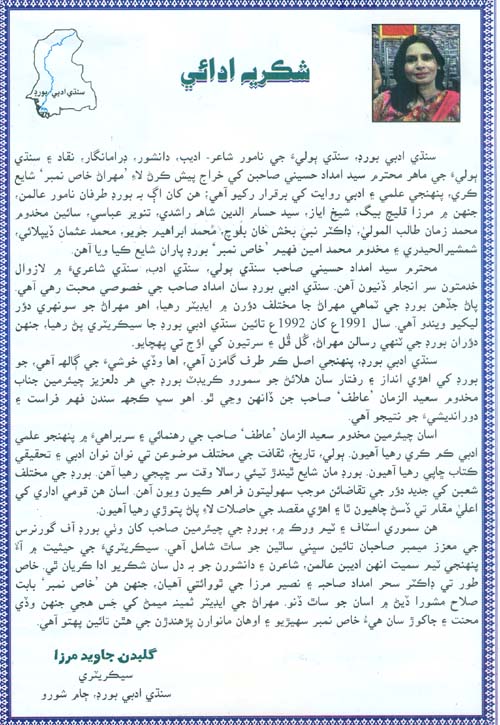 سنڌي ادبي بورڊ
شڪريہ ادائي
سنڌي ادبي بورڊ، سنڌي ٻوليءَ جي نامور شاعر، اديب، دانشور، ڊرامانگار، نقاد ۽ سنڌي
ٻوليءَ جي ماهر محترم سيد امداد حسيني صاحبن کي خراج پيش ڪرڻ لاءِ ’مهراڻ خاص نمبر‘ شايع
ڪري، پنهنجي علمي ۽ ادبي روايت کي برقرار رکيو آهي؛ هن کان اڳ به بورڊ طرفان نامور عالمن،
جنهن ۾ مرزا قليچ بيگ، شيخ اياز، سيد حسام الدين شاهه راشدي، تنوير عباسي، سائين مخدوم
محمد زمان طالب الموليٰ، ڊاڪٽر نبي بخش خان بلوچ، محمد ابراهيم جويو، محمد عثمان ڏيپلائي،
شمشيرالحيدري ۽ مخدوم محمد امين فهيم ’خاص نمبر‘ بورڊ پاران شايع ڪيا ويا آهن.
محترم سيد امداد حسيني صاحب سنڌي ٻولي، سنڌي ادب، سنڌي شاعريءَ ۾ لازوال
خدمتون سر انجام ڏنيون آهن. سنڌي ادبي بورڊ سان امداد صاحب جي خصوصي محبت رهي آهي.
پاڻ جڏهن بورڊ جي ٽماهي مهراڻ جا مختلف دؤرن ۾ ايڊيٽر رهيا، اهو مهراڻ جو سونهري دؤر
ليکيو ويندو آهي. سال 1991ع کان 1992ع تائين سنڌي ادبي بورڊ جا سيڪريٽري پڻ رهيا، جنهن
دؤران بورڊ جي ٽنهي رسالن مهراڻ، گُل ڦُل ۽ سرتيون کي اوج تي پهچايو.
سنڌي ادبي بورڊ، پنهنجي اصل ڪم طرف گامزن آهي، اها وڏي خوشيءَ جي ڳالهه آهي، جو
بورڊ کي اهڙي انداز ۽ رفتار سان هلائڻ جو سمورو ڪريڊٽ بورڊ جي هر دلعزيز چيئرمين جناب
مخدوم سعيد الزمان ’عاطف‘ صاحب جن ڏانهن وڃي ٿو. اهو سڀ ڪجهه سندن فهم فراست ۽
دورانديشيءَ جو نتيجو آهي.
اسان چيئرمين مخدوم سعيد الزمان ’عاطف‘ صاحب جي رهنمائي ۽ سربراهيءَ ۾ پنهنجو علمي
ادبي ڪم ڪري رهيا آهيون. ٻولي، تاريخ، ثقافت جي مختلف موضوعن تي نوان نوان ادبي ۽ تحقيقي
ڪتاب ڇاپي رهيا آهيون. بورڊ مان شايع ٿيندڙ ٽيئي رسالا وقت سر ڇپجي رهيا آهن. بورڊ جي مختلف
شعبن کي جديد دؤر جي تقاضائن موجب سهوليتون فراهم ڪيون ويون آهن. اسان هن قومي اداري کي
اعليٰ مقام تي ڏسڻ چاهيون ٿا ۽ اهڙي مقصد جي حاصلات لاءِ پاڻ پتوڙي رهيا آهيون.
هن سموري اسٽاف ۽ ٽيم ورڪ ۾، بورڊ جي چيئرمين صاحب کان وٺي بورڊ آف گورنرس
جي معزز ميمبر صاحبان تائين سڀني ساٿين جو ساٿ شامل آهي. سيڪريٽريءَ جي حيثيت ۾ آءٌ
پنهنجي ٽيم سميت انهن اديبن عالمن، شاعرن ۽ دانشورن جو به دل سان شڪريو ادا ڪريان ٿي. خاص
طور تي ڊاڪٽر سحر امداد صاحبہ ۽ نصير مرزا جي ٿورائتي آهيان، جنهن هن ’خاص نمبر‘ بابت
صلاح مشورا ڏيڻ ۾ اسان جو ساٿ ڏنو. مهراڻ جي ايڊيٽر ثمينہ ميمڻ کي جس هجي جنهن وڏي
محنت ۽ جاکوڙ سان هيءُ خاص نمبر سهيڙيو ۽ اوهان مانوارن پڙهندڙن جي هٿن تائين پهتو آهي.
گلبدن جاويد مرزا
سيڪريٽري
سنڌي ادبي بورڊ، ڄام شورو